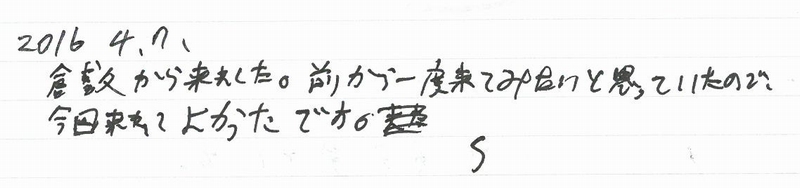 2016 4.7、
倉敷から来ました。前から一度来てみたいと思っていたので、
今回来れてよかったです。
S